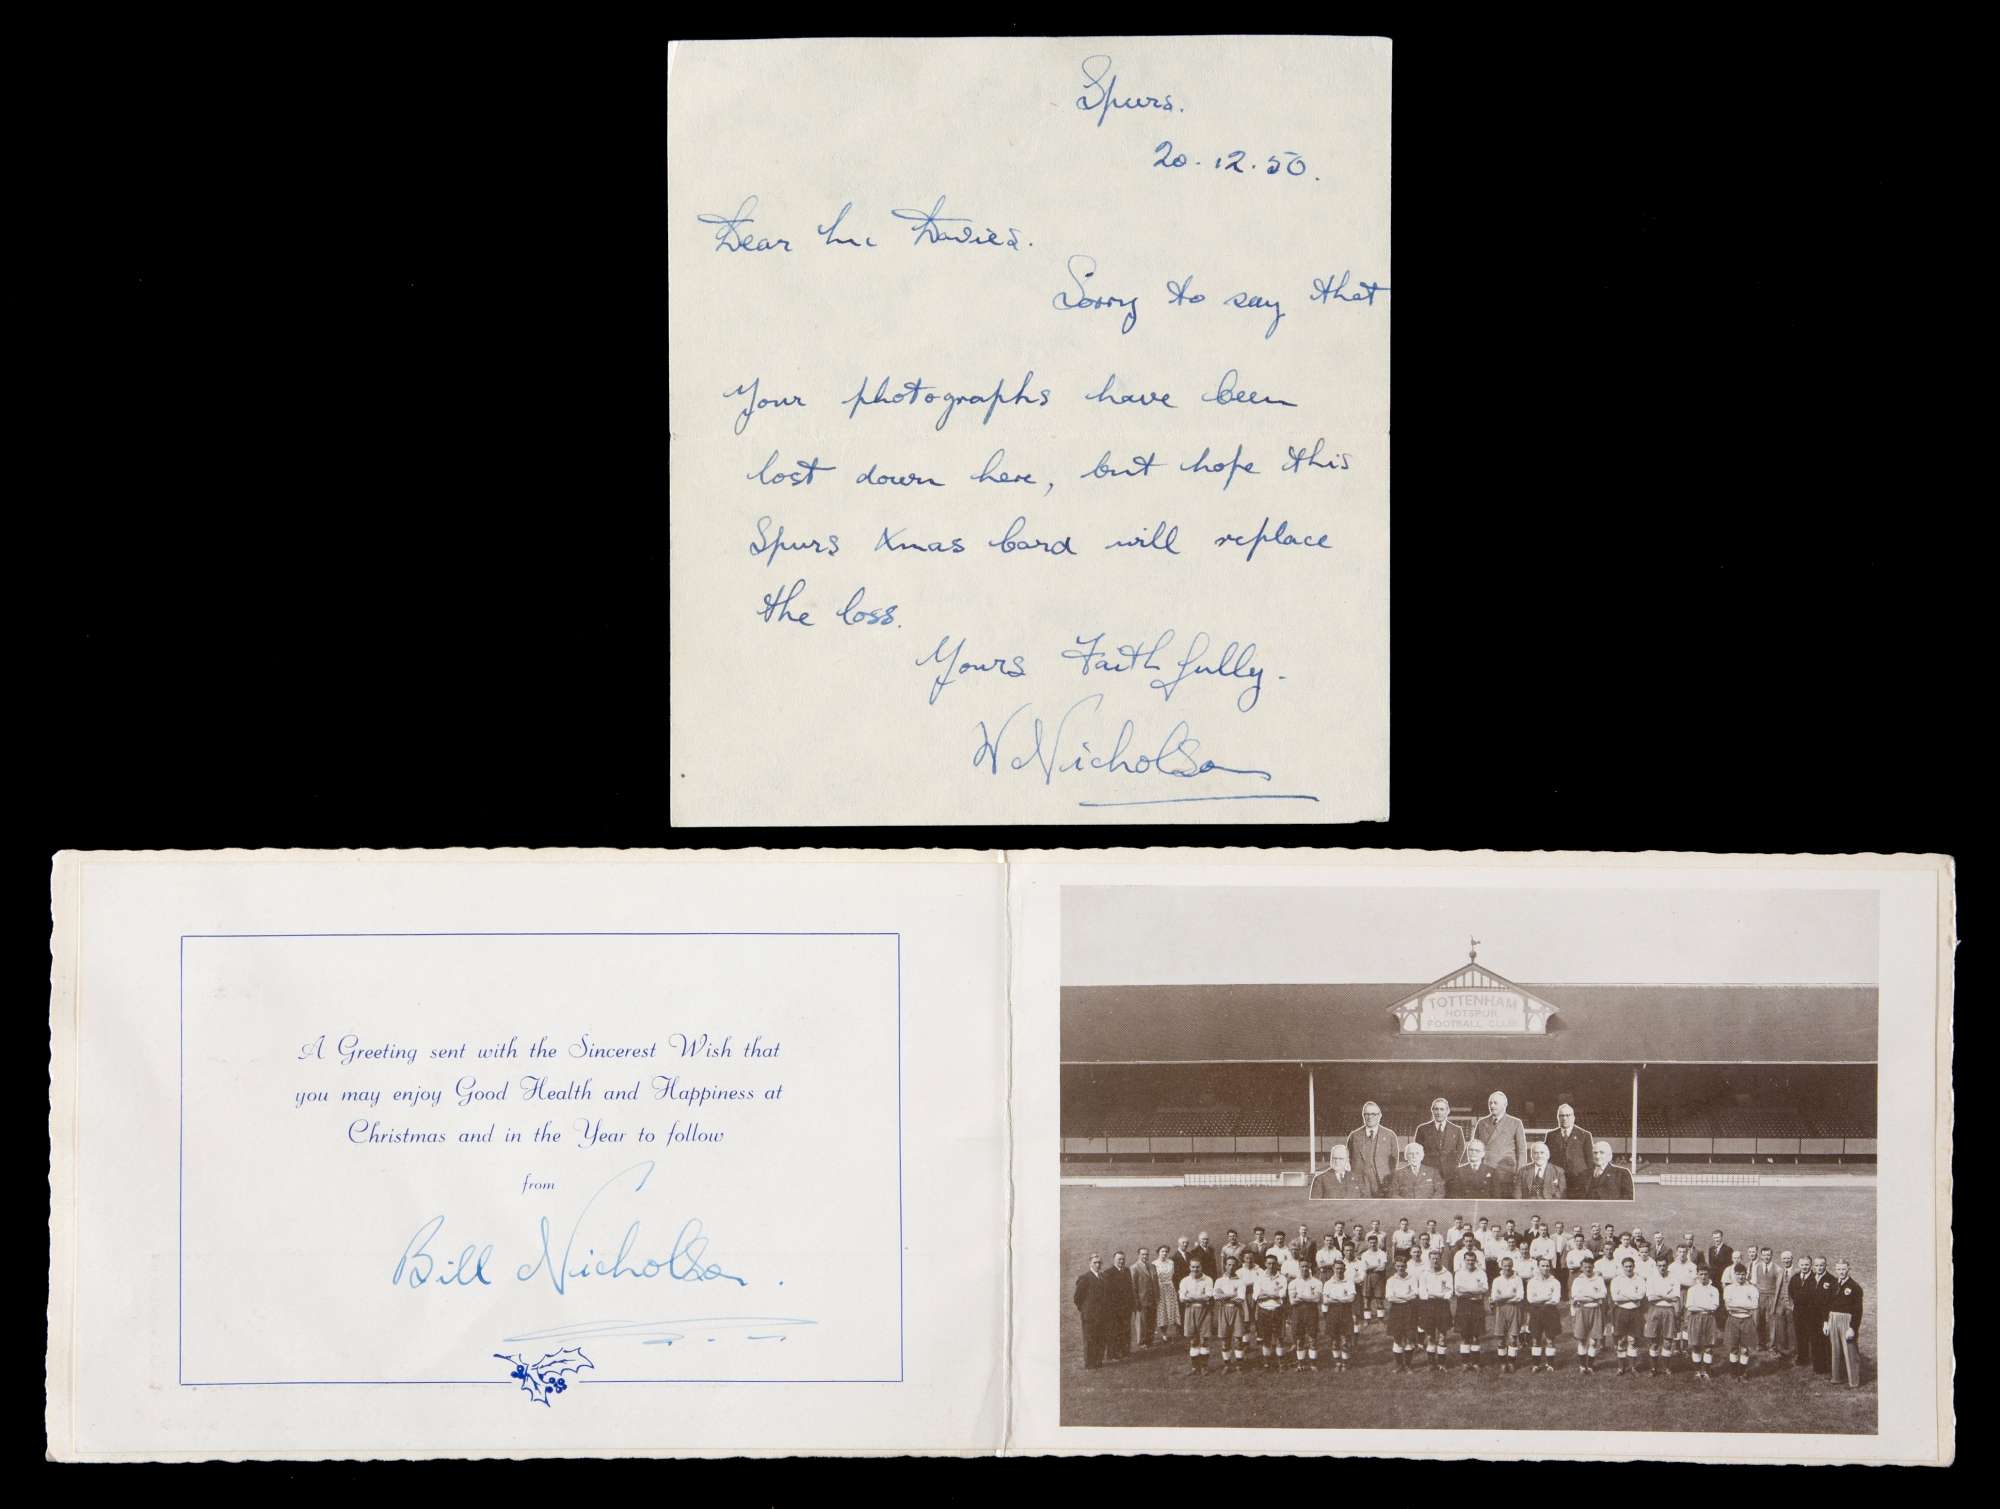 Spurs.
20.12.50.
Dear Mr Davies.
Sorry to say that
Your photographs have been
lost down here, but hope this
Spurs Xmas Card will replace
the loss.
Yours Faithfully.
W Nicholson
A Greeting sent with the Sincerest Wish that
you may enjoy Good Health and Happiness at
Christmas and in the Year to follow
from
Bill Nicholson.
TOTTENHAM
HOTSPUR
FOOTBALL CLUB